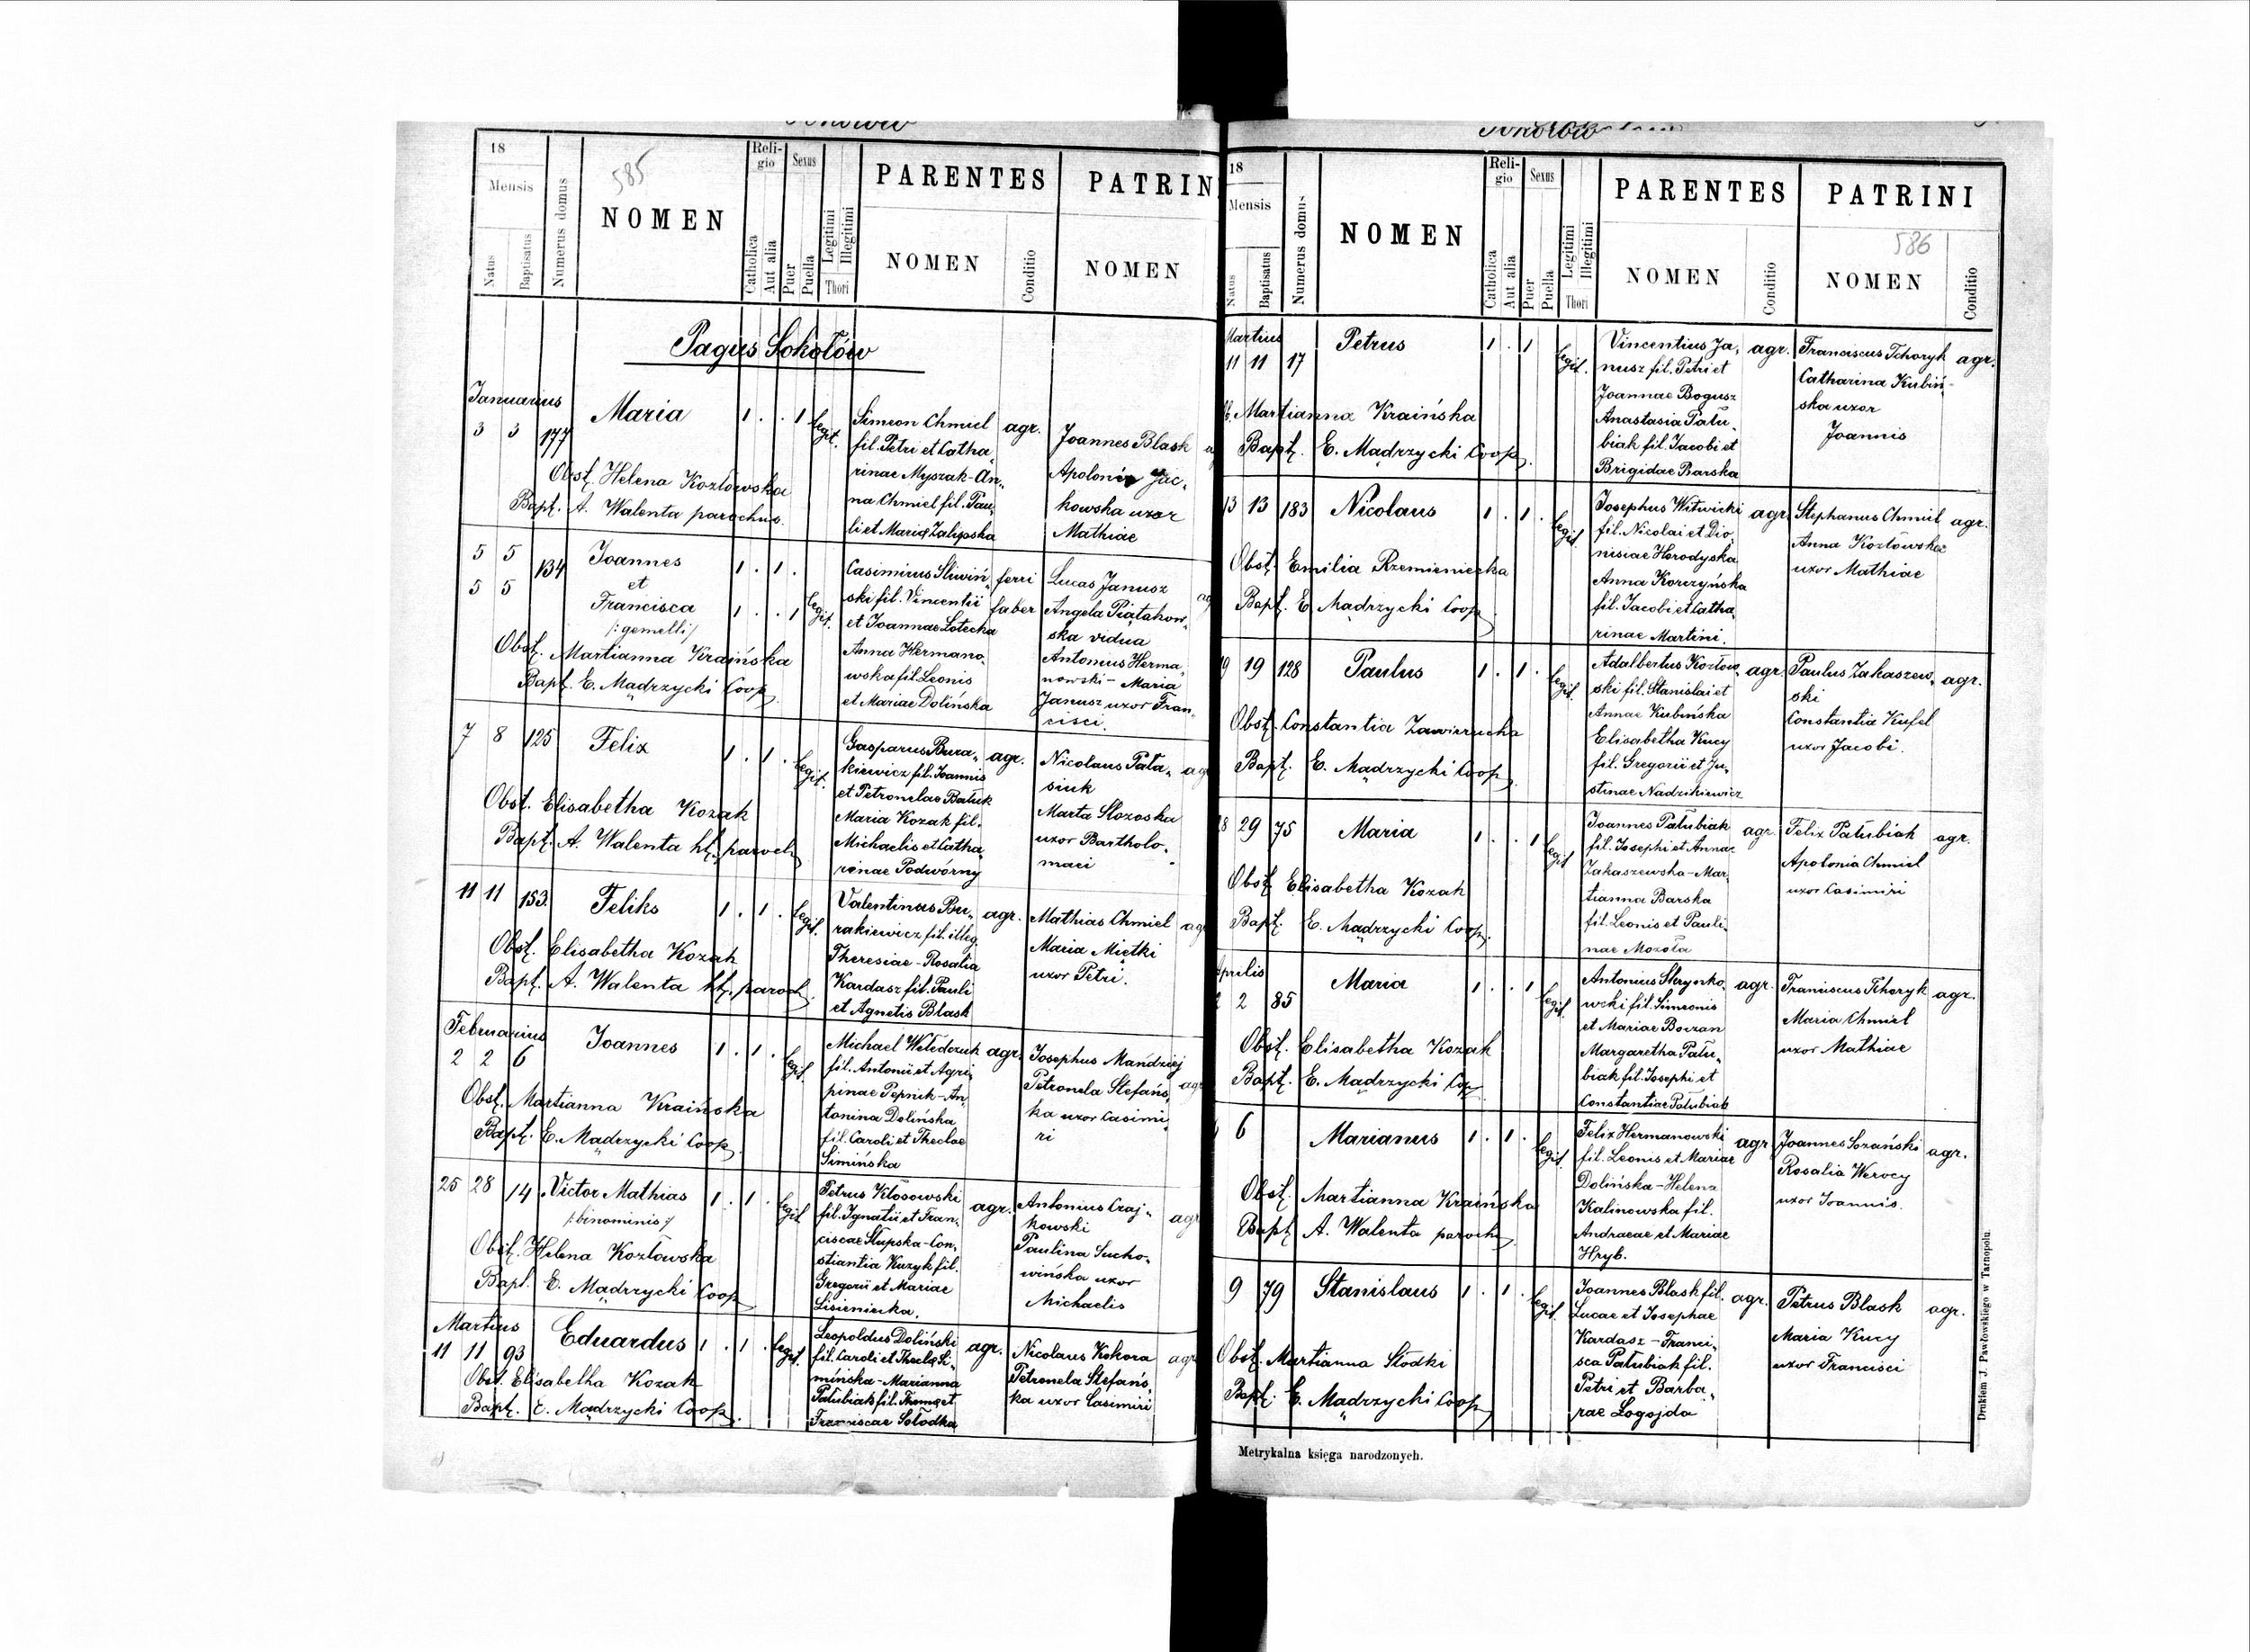 Sokołów
18
Mensis
Natus
Baptisatus
Numerus domus
585
NOMEN
Reli-
gio
Catholica
Aut alia
Sexus
Puer
Puella
Legitimi
Illegitimi
Thori
PARENTES
NOMEN
Conditio
PATRIN
NOMEN
Pagus Sokołów
Januarius
3 3 177 Maria 1 . . 1 legit.
Obst. Helena Kozłowska
Bapt. A. Walenta parochus.
Simeon Chmiel agr.
fil. Petri et Catha„
rinae Myszak-An„
na Chmiel fil. Pau„
li et Mariæ Zalipska
Joannes Blask
Apolonia Jac„
kowska uxor
Mathiae
5 5 134 Joannes 1 . 1 .
et
5 5 Francisca 1 . . 1 legit.
/:gemelli/
Obst. Martianna Kraińska
Bapt. E. Mądrzycki Coop.
Casimirus Sliwiń„ ferri
ski fil. Vincentii faber
et Joannae Lotecka
Anna Hermano„
wska fil. Leonis
et Mariae Dolińska
Lucas Janusz
Angela Piątakow„
ska vidua
Antonius Herma„
nowski - Maria
Janusz uxor Fran„
cisci.
7 8 125 Felix 1 . 1 . legit.
Obst. Elisabetha Kozak
Bapt. A. Walenta lt. paroch.
Gasparus Bura„ agr.
kiewicz fil. Joannis
et Petronelae Bałuk
Maria Kozak fil.
Michaelis et Catha„
rinae Podwórny
Nicolaus Pała„
siuk
Marta Slozoska
uxor Bartholo„
maei
11 11 153. Feliks 1 . 1 . legit.
Obst. Elisabetha Kozak
Bapt. A. Walenta lt. paroch.
Valentinus Bu„ agr.
rakiewicz fil. illeg.
Theresiae - Rosalia
Kardasz fil. Pauli
et Agnetis Blask
Mathias Chmiel
Maria Miętki
uxor Petri.
Februarius
2 2 6 Joannes 1 . 1 . legit.
Obst. Martianna Kraińska
Bapt. E. Mądrzycki Coop.
Michael Weledczuk agr.
fil. Antonii et Agri„
pinae Pepnik-An„
tonina Dolińska
fil. Caroli et Theclae
Simińska
Josephus Mandziej
Petronela Stefańs„
ka uxor Casimi„
ri
25 28 14 Victor Mathias 1 . 1 . legit.
/:binominis:/
Obst. Helena Kozłowska
Bapt. E. Mądrzycki Coop.
Petrus Kłosowski agr.
fil. Ignatii et Fran„
ciscae Słupska-Con„
stiantia Kuzyk fil.
Gregorii et Mariae
Lisieniecka.
Antonius Czaj„
kowski
Paulina Sucho„
wińska uxor
Michaelis
Martius
11 11 93 Eduardus 1 . 1 . legit.
Obst. Elisabetha Kozak
Bapt. E. Mądrzycki Coop.
Leopoldus Doliński agr.
fil. Caroli et Theclæ Si„
mińska-Marianna
Patubiak fil. Thomæ et
Franciscae Sołodka
Nicolaus Kokora
Petronela Stefańs„
ka uxor Casimiri
Sokołów
18
Mensis
Natus
Baptisatus
Numerus domus
NOMEN
Reli-
gio
Catholica
Aut alia
Sexus
Puer
Puella
Legitimi
Illegitimi
Thori
PARENTES
NOMEN
Conditio
PATRINI
586
NOMEN
Conditio
Martius
11 11 17 Petrus 1 . 1 legit.
Martianna Kraińska
Bapt. E. Mądrzycki Coop.
Vincentius Ja„ agr.
nusz fil. Petri et
Joannae Bogusz
Anastasia Patu„
biak fil. Jacobi et
Brigidae Barska
Franciscus Tchoryk agr.
Catharina Kubiń-
ska uxor
Joannis
13 13 183 Nicolaus 1 . 1 . legit.
Obst. Emilia Rzemieniecka
Bapt. E. Mądrzycki Coop.
Josephus Witwicki agr.
fil. Nicolai et Dio„
nisiae Horodyska
Anna Korczyńska
fil. Jacobi et Catha„
rinae Martini.
Stephanus Chmiel agr.
Anna Kozłowska
uxor Mathiae
19 19 128 Paulus 1 . 1 . legit.
Obst. Constantia Zawierucha
Bapt. E. Mądrzycki Coop.
Adalbertus Kozłow„ agr.
ski fil. Stanislai et
Annae Kubińska
Elisabetha Kucy
fil. Gregorii et Ju„
stinae Nadzikiewicz
Paulus Zakaszew„ agr.
ski
Constantia Kufel
uxor Jacobi.
28 29 75 Maria 1 . . 1 legit.
Obst. Elisabetha Kozak
Bapt. E. Mądrzycki Coop.
Joannes Patubiak agr.
fil. Josephi et Annae
Zakaszewska-Mar„
tianna Barska
fil. Leonis et Pauli„
nae Mozoła
Felix Patubiak agr.
Apolonia Chmiel
uxor Casimiri
Aprilis
2 2 85 Maria 1 . . 1 legit.
Obst. Elisabetha Kozak
Bapt. E. Mądrzycki Coop.
Antonius Skrynko„ agr.
wski fil. Simeonis
et Mariae Boczan
Margaretha Patu„
biak fil. Josephi et
Constantiae Patubiak
Franciscus Tchoryk agr.
Maria Chmiel
uxor Mathiae
6 Marianus 1 . 1 . legit.
Obst. Martianna Kraińska
Bapt. A. Walenta paroch.
Felix Hermanowski agr.
fil. Leonis et Mariae
Dolińska - Helena
Kalinowska fil.
Andraeae et Mariae
Hryb.
Joannes Sozański agr.
Rosalia Werocy
uxor Joannis.
9 79 Stanislaus 1 . 1 . legit.
Obst. Martianna Słodki
Bapt. E. Mądrzycki Coop.
Joannes Blask fil. agr.
Lucae et Josephae
Kardasz - Franci„
sca Patubiak fil.
Petri et Barba„
rae Logojda
Petrus Blask agr.
Maria Kucy
uxor Francisci
Metrykalna księga narodzonych.
Drukiem J. Pawłowskiego w Tarnopolu.